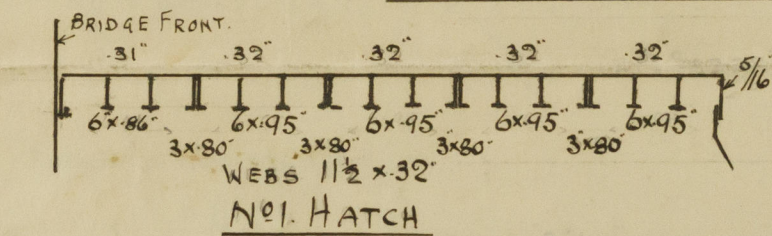 BRIDGE FRONT.
.31" .32" .32" .32" .32" 5/16"
6"x.86" 6x.95" 6x.95" 6x.95" 6x.95"
3x.80" 3x.80" 3x.80" 3"x.80"
WEBS 11½ x .32"
Nº1. HATCH